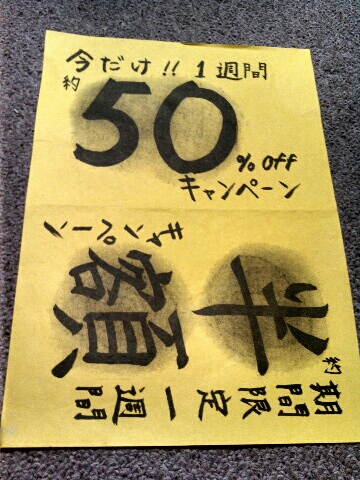 今だけ!! 1週間
約
50
% off
キャンペーン
期間限定一週間
約
半額
キャンペーン